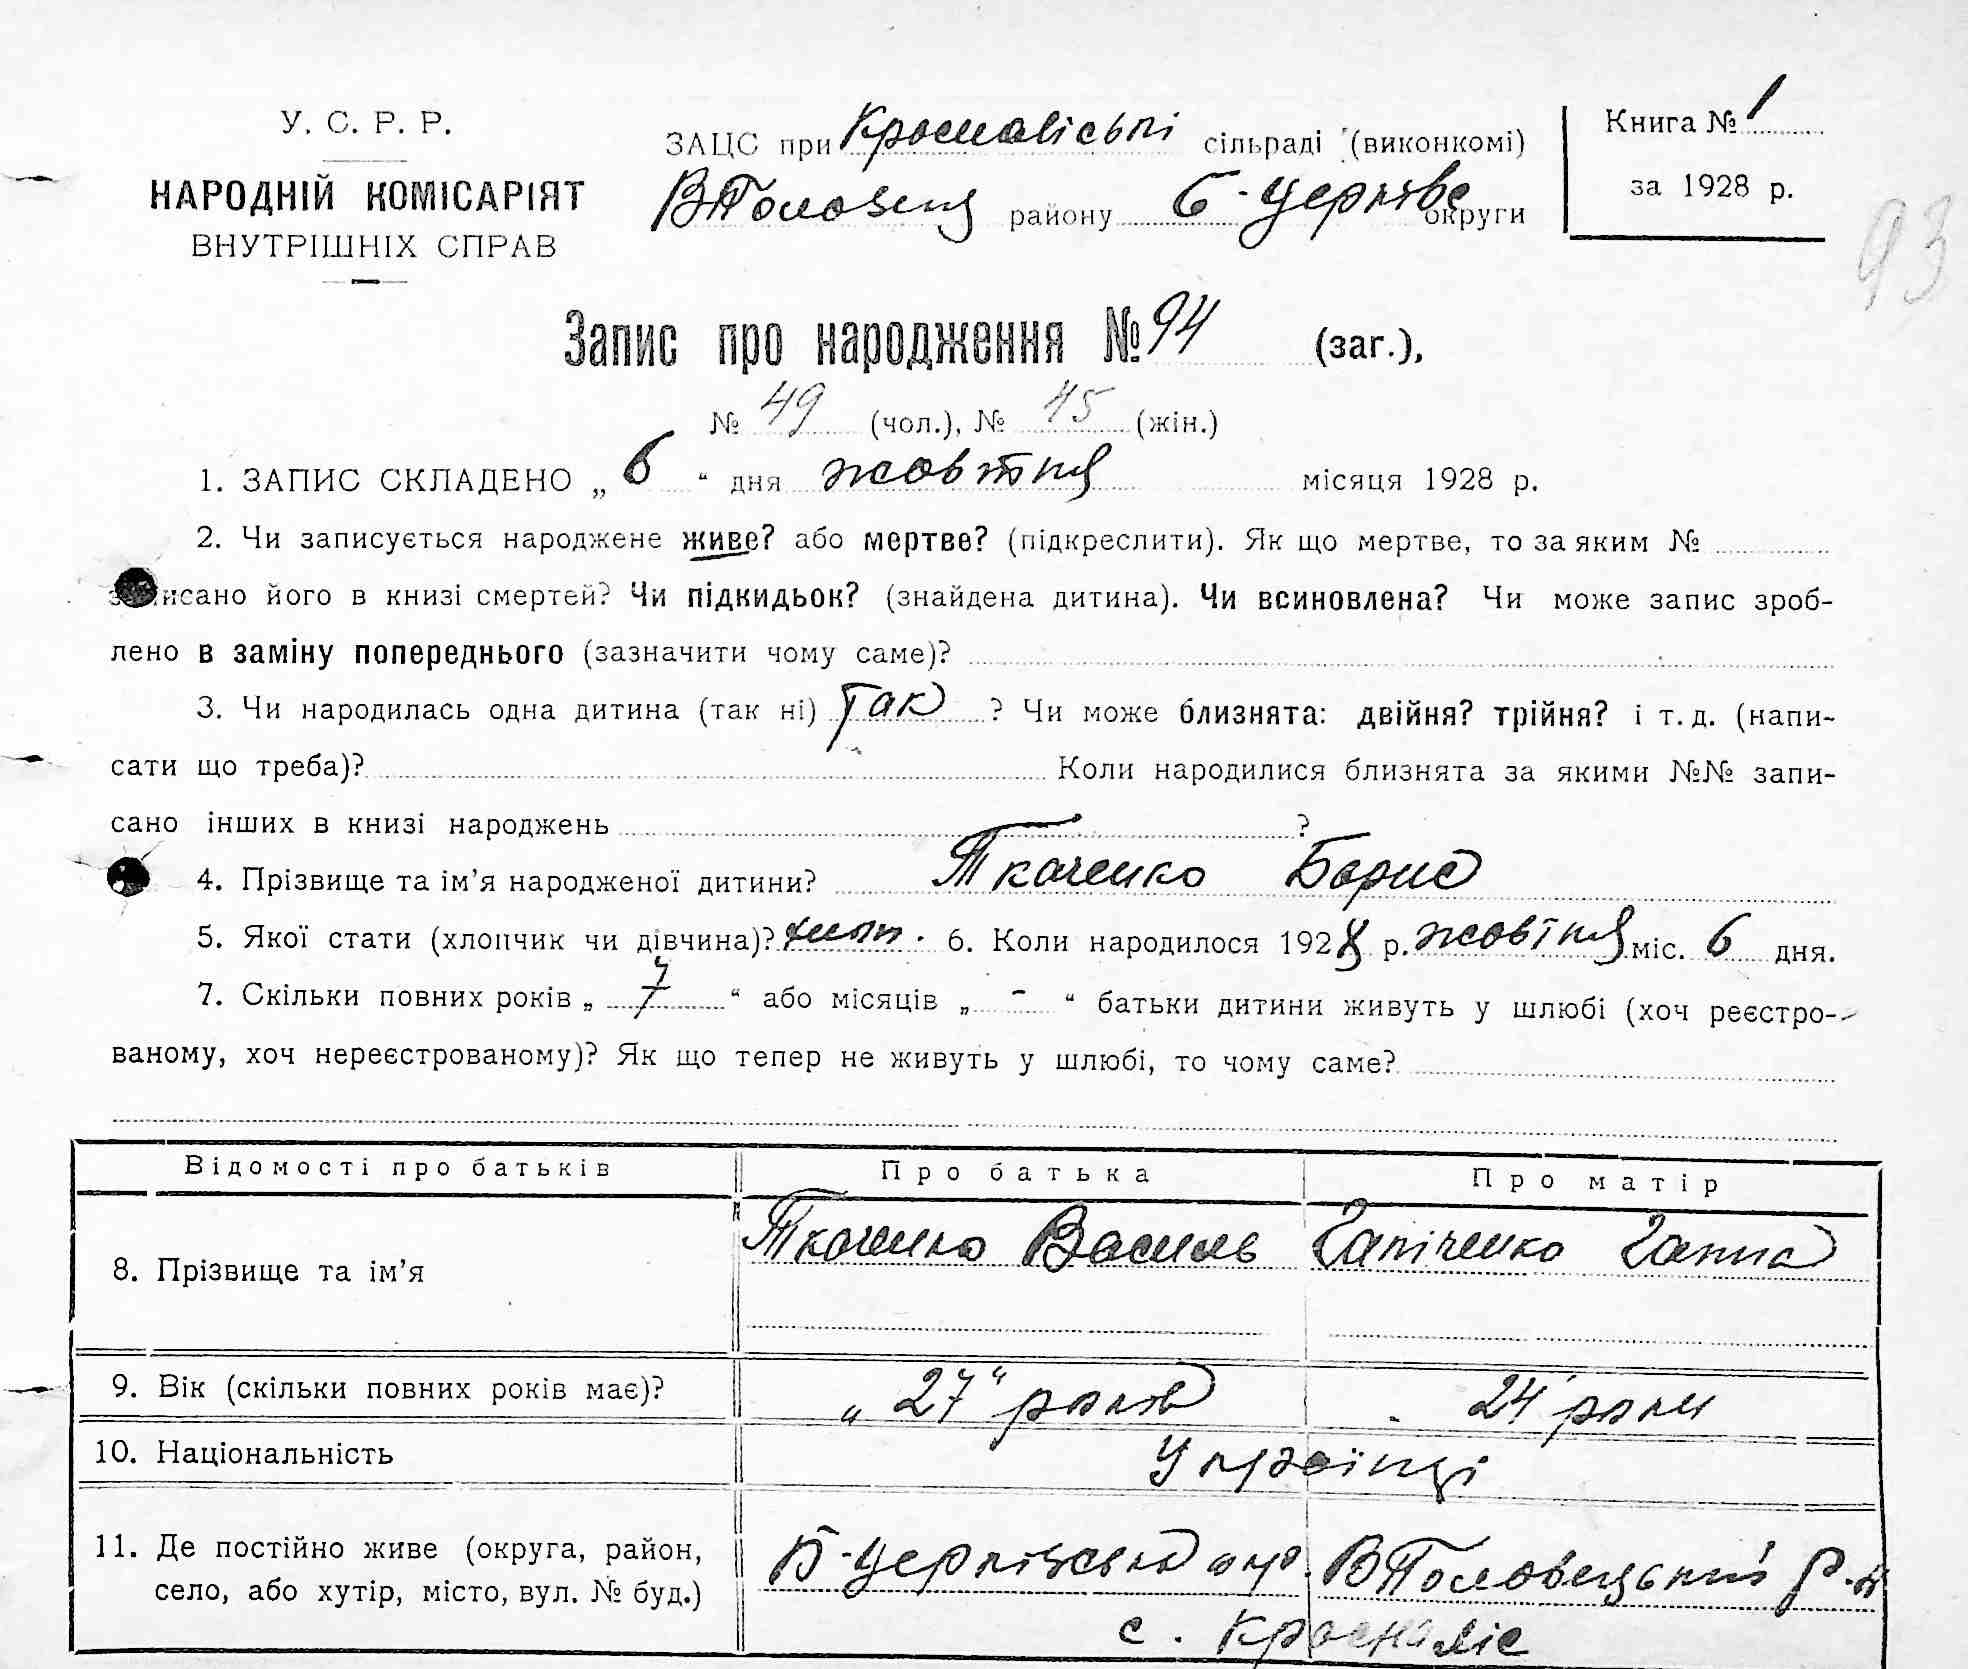 У. С. Р. Р.
НАРОДНІЙ КОМІСАРІЯТ
ВНУТРІШНІХ СПРАВ
ЗАЦС при сільраді (виконкомі)
В Половец району Б-Церківс округи
Книга № 1
за 1928 р.
93
Запис про народження № 94 (заг.),
№ 49 (чол.), № 45 (жін.)
1. ЗАПИС СКЛАДЕНО „ 6 “ дня жовтня місяця 1928 р.
2. Чи записується народжене живе? або мертве? (підкреслити). Як що мертве, то за яким №
записано його в книзі смертей? Чи підкидьок? (знайдена дитина). Чи всиновлена? Чи може запис зроб-
лено в заміну попереднього (зазначити чому саме)?
3. Чи народилась одна дитина (так ні) так ? Чи може близнята: двійня? трійня? і т. д. (напи-
сати що треба)? Коли народилися близнята за якими №№ запи-
сано інших в книзі народжень ?
4. Прізвище та ім’я народженої дитини? Ткаченко Борис
5. Якої стати (хлопчик чи дівчина)? хлоп. 6. Коли народилося 1928 р. жовтня міс. 6 дня.
7. Скільки повних років „ 7 “ або місяців „ - “ батьки дитини живуть у шлюбі (хоч реєстро-
ваному, хоч нереєстрованому)? Як що тепер не живуть у шлюбі, то чому саме?
Відомості про батьків Про батька Про матір
8. Прізвище та ім’я Ткаченко Василь Гапіченко Ганна
9. Вік (скільки повних років має)? „ 27 “ років 24 роки
10. Національність Українці
11. Де постійно живе (округа, район,
село, або хутір, місто, вул. № буд.)
Б-Церківська окр. В Половецький р-н
с.